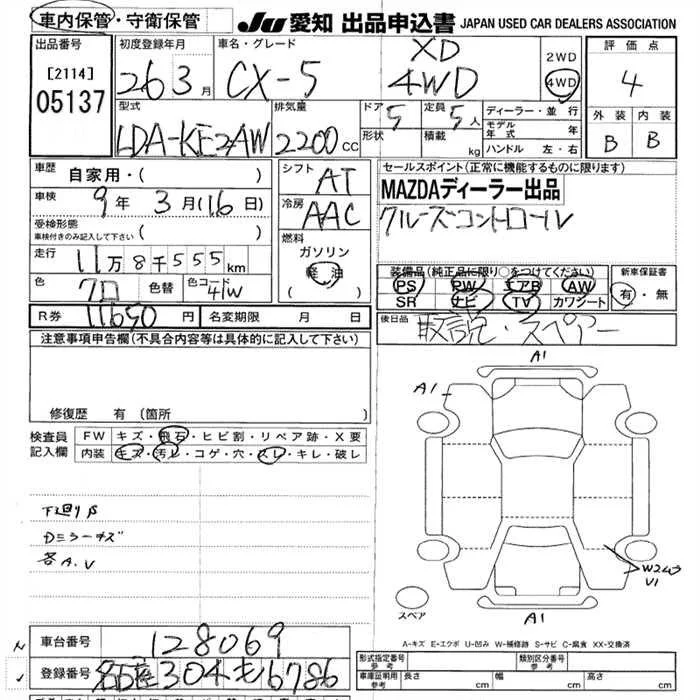 車内保管・守衛保管 JU 愛知 出品申込書 JAPAN USED CAR DEALERS ASSOCIATION
出品番号 [2114] 05137
初度登録年月 26 3月
車名・グレード CX-5 XD 4WD
2WD 4WD
評価点 4
外装 B 内装 B
型式 LDA-KE2AW
排気量 2200 CC
ドア 5 形状
定員 5人 積載 kg
ディーラー・並行
モデル年式 年
ハンドル 左・右
車歴 自家用・( )
車検 9年3月(16日)
受検形態 車検付きのみ記入して下さい ( )
走行 11万8千555km
色 クロ 色替 色コード 41W
シフト AT
冷房 AAC
燃料 ガソリン 軽油 ( )
セールスポイント(正常に機能するものに限ります)
MAZDAディーラー出品
クルーズコントロール
装備品(純正品に限り○をつけてください)
PS PW エアB AW
SR ナビ TV カワシート
新車保証書 有・無
R券 11650円 名変期限 月 日
後日品 取説・スペアー
注意事項申告欄(不具合内容等は具体的に記入して下さい)
修復歴 有(箇所
検査員記入欄
FW キズ・飛石・ヒビ割・リペア跡・X要
内装 キズ・汚レ・コゲ・穴・スレ・キレ・破レ
下廻りS
Dミラーキズ
各A.V
A1
A1
W2 U3
V1
A1
スペア
A-キズ E-エクボ U-凹み W-補修跡 S-サビ C-腐食 XX-交換済
車台番号 128069
登録番号 名古屋304も6786
形式指定番号 類別区分番号
車庫証明用参考 長さ cm 幅 cm 高さ cm